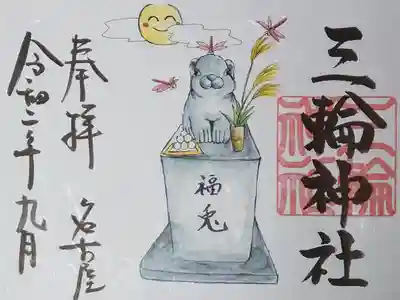 三輪神社
福兎
奉拝
名古屋
令和二年九月